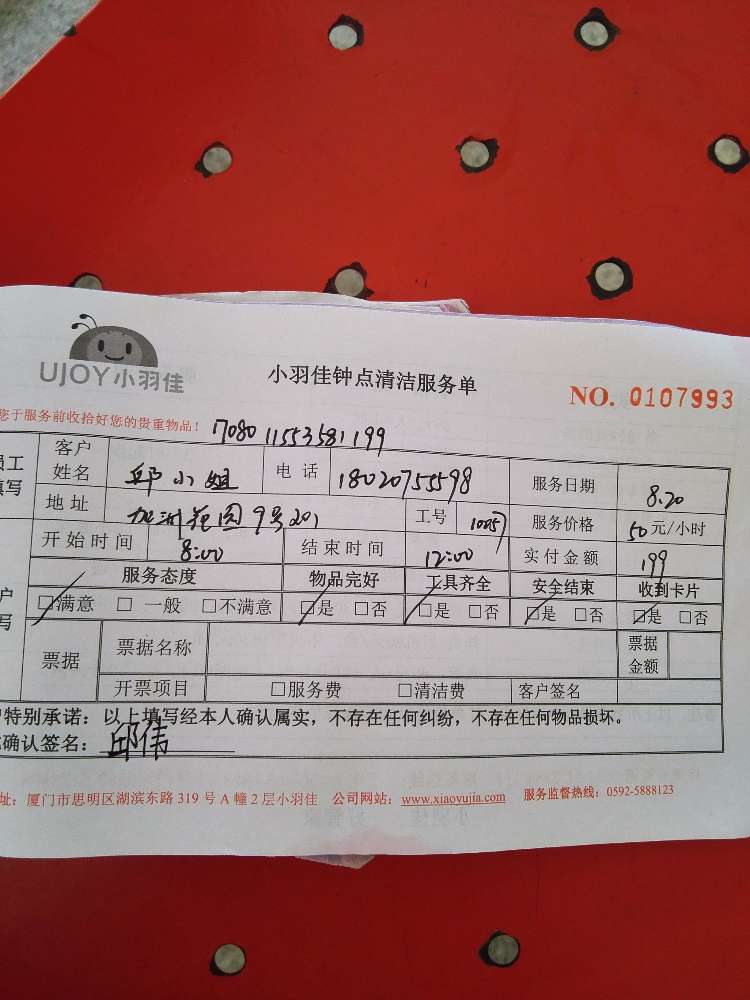 UJOY小羽佳
小羽佳钟点清洁服务单
NO. 0107993
您于服务前收拾好您的贵重物品！ 1708011553581199
员工 客户 姓名 邱小姐 电话 18020755598 服务日期 8.20
填写 地址 加洲花园9号201 工号 1005 服务价格 50元/小时
开始时间 8:00 结束时间 12:00 实付金额 199
服务态度 物品完好 工具齐全 安全结束 收到卡片
户 写 □满意 □一般 □不满意 □是 □否 □是 □否 □是 □否 □是 □否
票据 票据名称 票据 金额
开票项目 □服务费 □清洁费 客户签名
特别承诺：以上填写经本人确认属实，不存在任何纠纷，不存在任何物品损坏。
确认签名：邱伟
址：厦门市思明区湖滨东路319号A幢2层小羽佳 公司网站：www.xiaoyujia.com 服务监督热线：0592-5888123